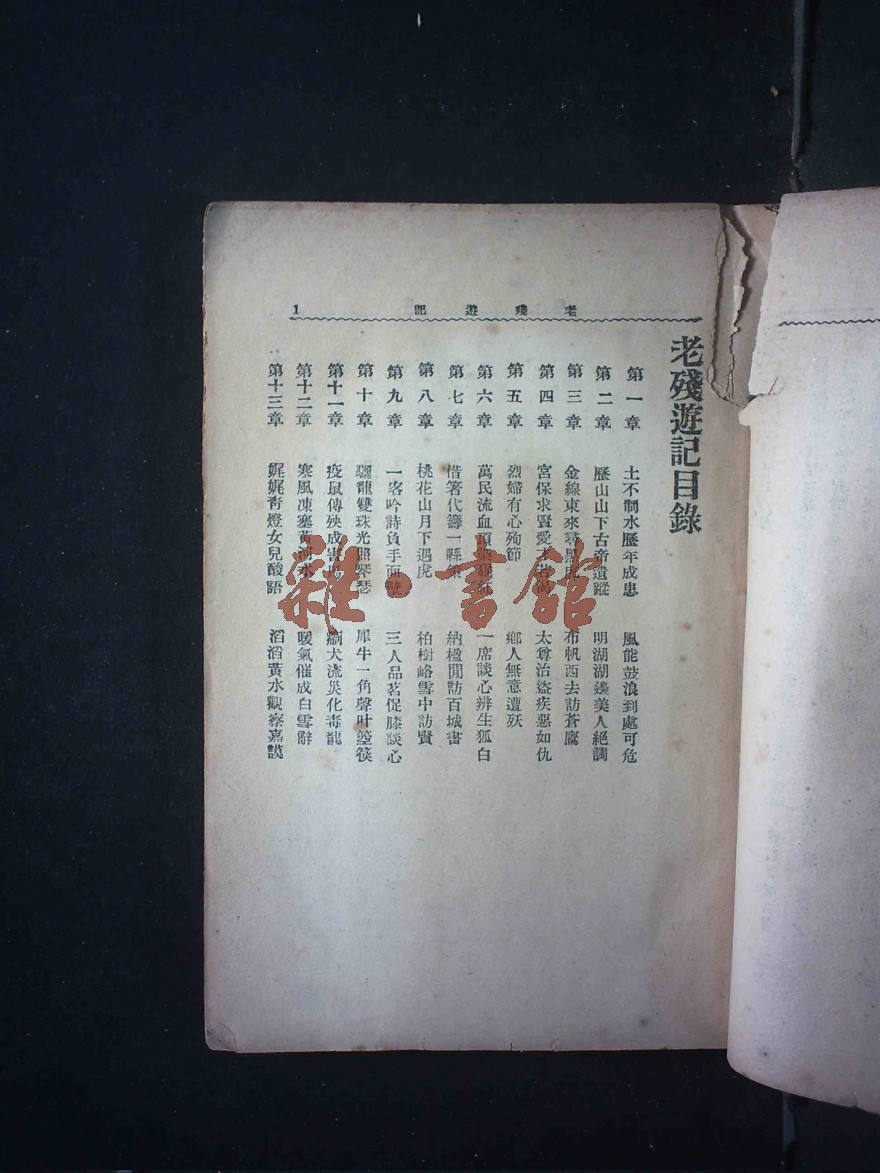 老殘遊記 1
老殘遊記目錄
第一章 土不制水歷年成患 風能鼓浪到處可危
第二章 歷山山下古帝遺蹤 明湖湖邊美人絕調
第三章 金線東來尋黑虎 布帆西去訪蒼鷹
第四章 宮保求賢愛才若渴 太尊治盜疾惡如仇
第五章 烈婦有心殉節 鄉人無意遭殀
第六章 萬民流血頂染猩紅 一席談心辨生狐白
第七章 借箸代籌一縣策 納楹閒訪百城書
第八章 桃花山月下遇虎 柏樹峪雪中訪賢
第九章 一客吟詩負手面壁 三人品茗促膝談心
第十章 驪龍雙珠光照琴瑟 犀牛一角聲叶箜篌
第十一章 疫鼠傳殃成害馬 瘈犬流災化毒龍
第十二章 寒風凍塞黃河水 暖氣催成白雪辭
第十三章 娓娓青燈女兒酸語 滔滔黃水觀察嘉謨
雜·書館